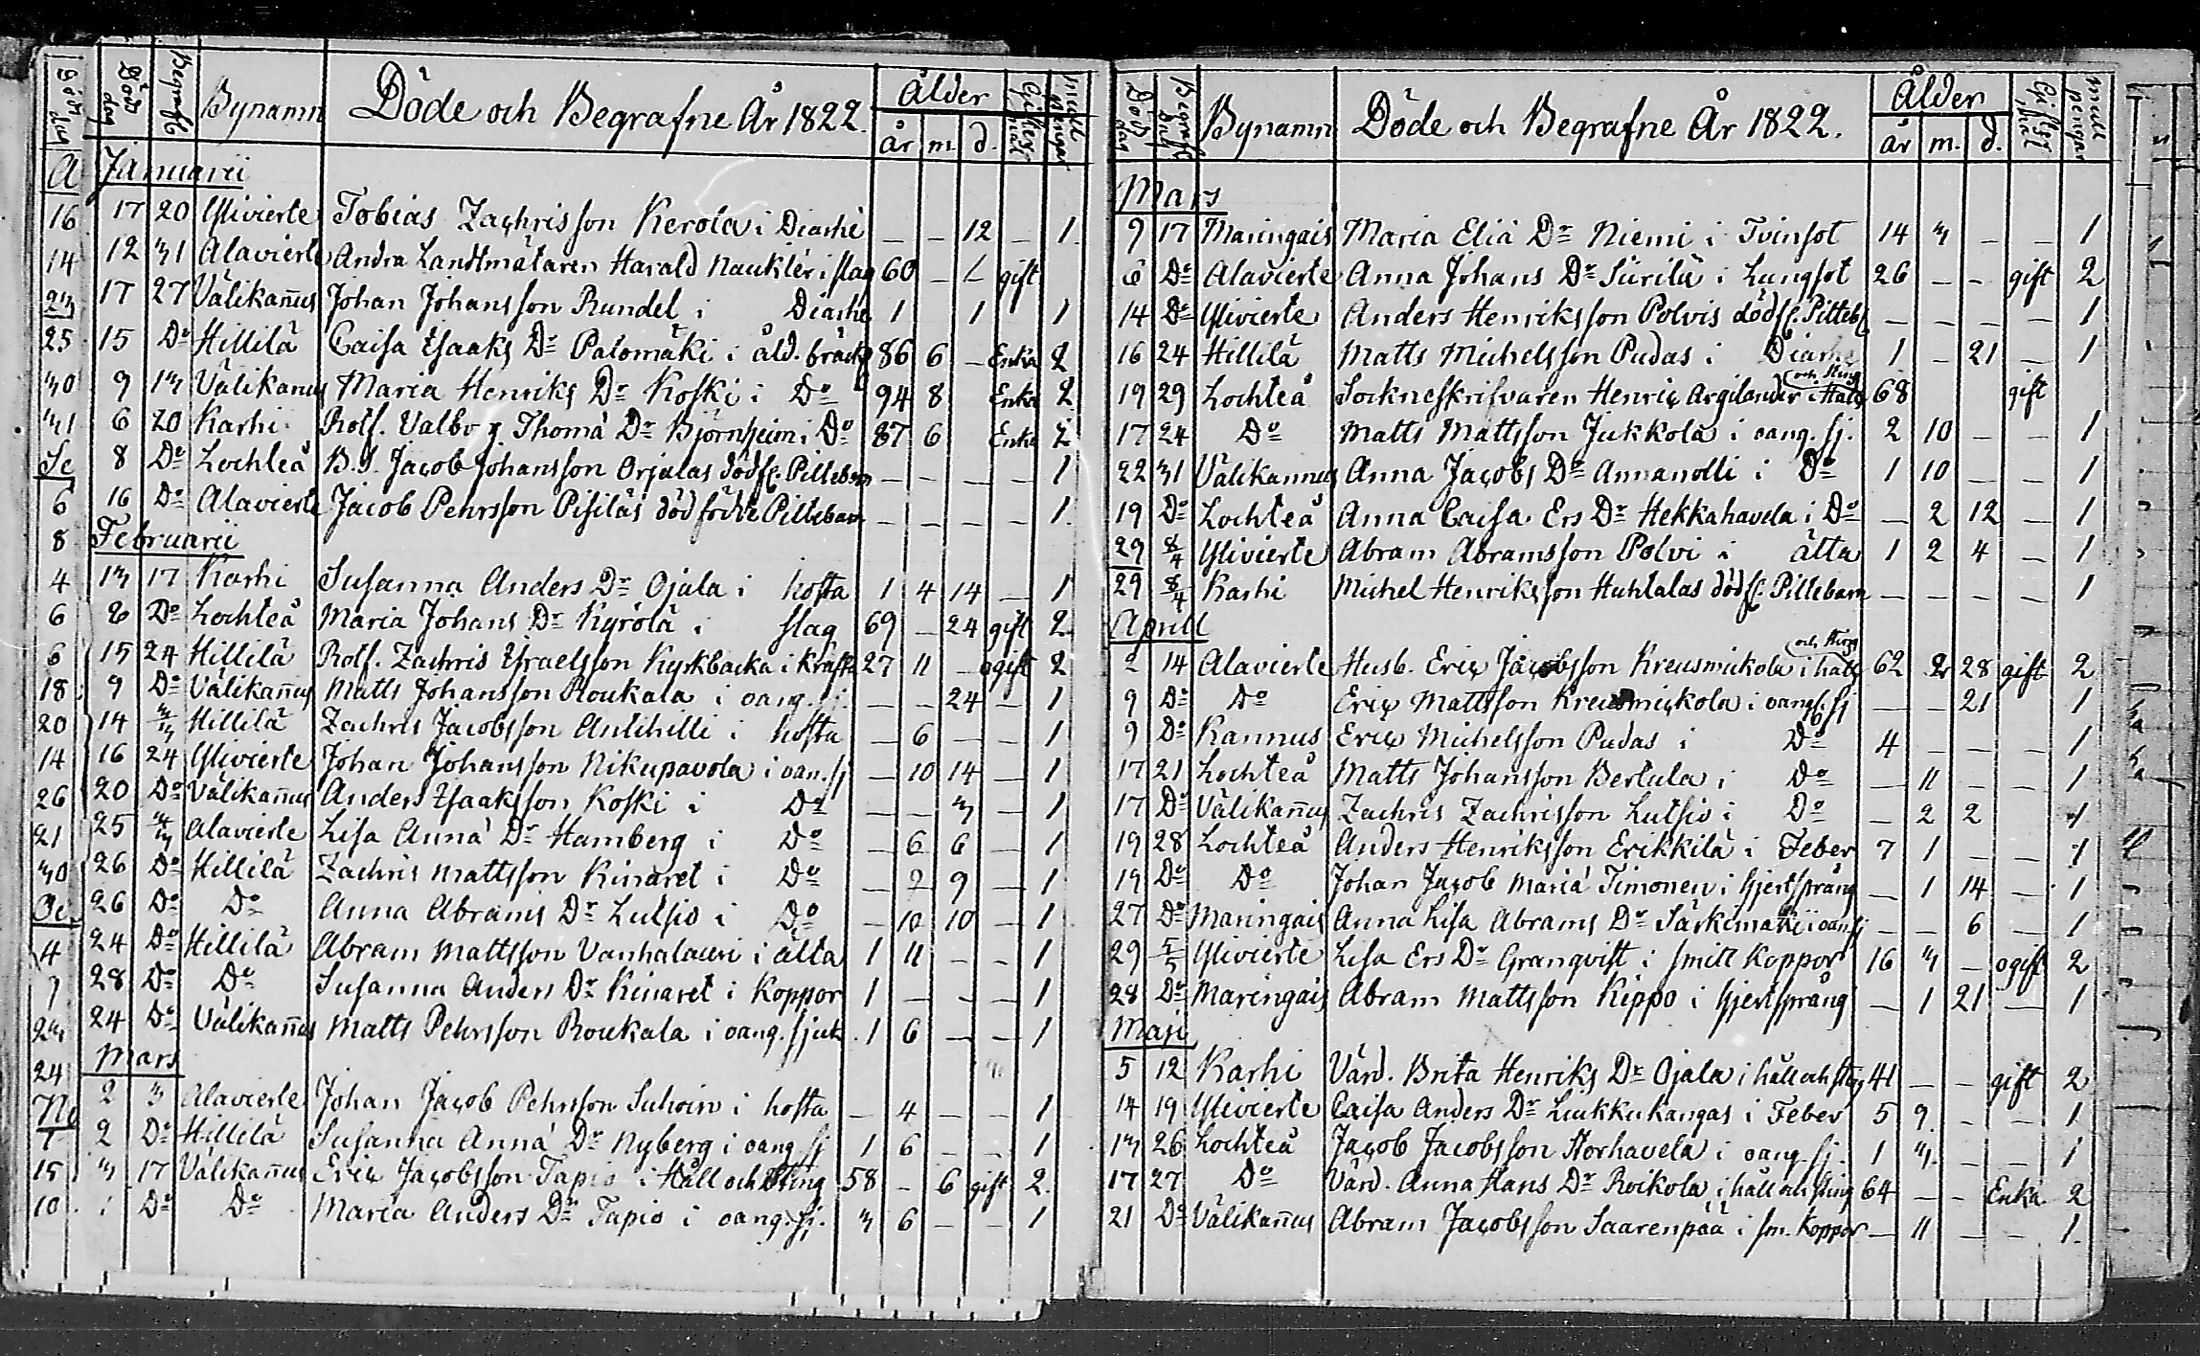 Död dag Begrafl Bynamn Döde och Begrafne År 1822. Ålder år m. d. Giftermål
Januarii
17 20 Ylivierte Tobias Zachrisson Kerola i Diarhé — — 12 — 1.
12 31 Alavierte Andra Landtmätaren Harald Nauklér i slag 60 — gift
17 27 Välikan̄us Johan Johansson Rundel i Diarhé 1 1 1
15 Do Hillilä Caisa Ysaaks Dr Palomäki i åld. bräck 86 6 — Enka 2
9 13 Välikanus Maria Henriks Dr Koski i Do 94 8 Enka 2
6 20 Karhi Rotf. Valbor Thomæ Dr Björnheim i Do 87 6 Enka 2
8 Do Lochteå B.S. Jacob Johansson Orjalas dödf. Pillebarn — — — — 1
16 Do Alavierte Jacob Pehrsson Pisiläs död födde Piltebarn — — — — 1.
Februarii
13 17 Karhi Susanna Anders Dr Ojala i hosta 1 4 14 — 1
8 Do Lochteå Maria Johans Dr Kyrölä i slag 69 — 24 gift 2
15 24 Hillilä Rotf. Zachris Ysraelsson Kyrkbacka i krafta 27 11 — ogift 2
9 Do Välikan̄us Matts Johansson Roukala i oang. sj. — — 24 — 1
14 3/3 Hillilä Zachris Jacobsson Antihilli i hosta — 6 — — 1
16 24 Ylivierte Johan Johansson Nikupavola i oan. sj — 10 14 — 1
20 Do Välikan̄us Anders Ysaaksson Koski i Do — — 3 — 1
25 3/3 Alavierte Lisa Anna Dr Hamberg i Do — 6 6 — 1
26 Do Hillilä Zachris Mattsson Kinaret i Do — 2 9 — 1
26 Do Do Anna Abrams Dr Lutsio i Do — 10 10 — 1
24 Do Hillilä Abram Mattsson Vanhalauri i älta 1 11 — — 1
28 Do Do Susanna Anders Dr Kinaret i Koppor 1 — — — 1
24 Do Välikan̄us Matts Pehrsson Roukala i oang. sjuk. 1 6 — — 1
Mars
2 3 Alavierte Johan Jacob Pehrsson Suhoin i hosta — 4 — — 1
2 Do Hillilä Susanna Anna Dr Nyberg i oang sj 1 6 — — 1
3 17 Välikan̄us Eric Jacobsson Tapio i Håll och Sting 58 — 6 gift 2.
1 Do Do Maria Anders Dr Tapio i oang. sj. 3 6 — — 1
Död dag Begrafl Bynamn Döde och Begrafne År 1822. Ålder år m. d. Giftermål
Mars
9 17 Maringais Maria Eliæ Dr Niemi i Tvinsot 14 3 — — 1
6 Do Alavierte Anna Johans Dr Sürilä i Lungsot 26 — — gift 2
14 Do Ylivierte Anders Henriksson Polvis dödf. Pilteb. — — — — 1
16 24 Hillilä Matts Michelsson Pudas i Diarhe 1 — 21 — 1
19 29 Lochteå Sockneskrifvaren Henric Argilander i Håll och Sting 68 gift
17 24 Do Matts Mattsson Jukkola i oang. sj. 2 10 — — 1
22 31 Välikannus Anna Jacobs Dr Annanolli i Do 1 10 — — 1
19 Do Lochteå Anna Caisa Ers Dr Hekkahavela i Do — 2 12 — 1
29 8/4 Ylivierte Abram Abramsson Polvi i älta 1 2 4 — 1
29 8/4 Karhi Michel Henriksson Huhtalas dödf. Pillebarn — — — — 1
Aprill
2 14 Alavierte Husb. Eric Jacobsson Kreusmickola i håll och sting 62 2 28 gift 2
9 Do Do Eric Mattsson Kreusmickola i oang. sj — — 21 1
9 Do Kannus Eric Michelsson Pudas i Do 4 — — — 1
17 21 Lochteå Matts Johansson Bertula i Do — 11 — — 1
17 Do Välikan̄us Zachris Zachrisson Lutsio i Do — 2 2 1
19 28 Lochteå Anders Henriksson Erikkilä i Feber 7 1 — — 1
19 Do Do Johan Jacob Mariæ Timonen i hjertsprång — 1 14 — 1
27 Do Maringais Anna Lisa Abrams Dr Särkimäki i oan sj — — 6 — 1
29 5/5 Ylivierte Lisa Ers Dr Granqvist i smitt Koppor 16 3 — ogift 2
28 Do Maringais Abram Mattsson Kippo i hjertsprång — 1 21 — 1
Maji
5 12 Karhi Värd. Brita Henriks Dr Ojala i håll och sting 41 — — gift 2
14 19 Ylivierte Caisa Anders Dr Luukkukangas i Feber 5 9 — — 1
13 26 Lochteå Jacob Jacobsson Storhavela i oang. sj. 1 3 — — 1
17 27 Do Värd. Anna Hans Dr Roikola i håll och sting 64 — — Enka 2
21 Do Välikan̄us Abram Jacobsson Saarenpää i sm. Koppor — 11 — — 1.